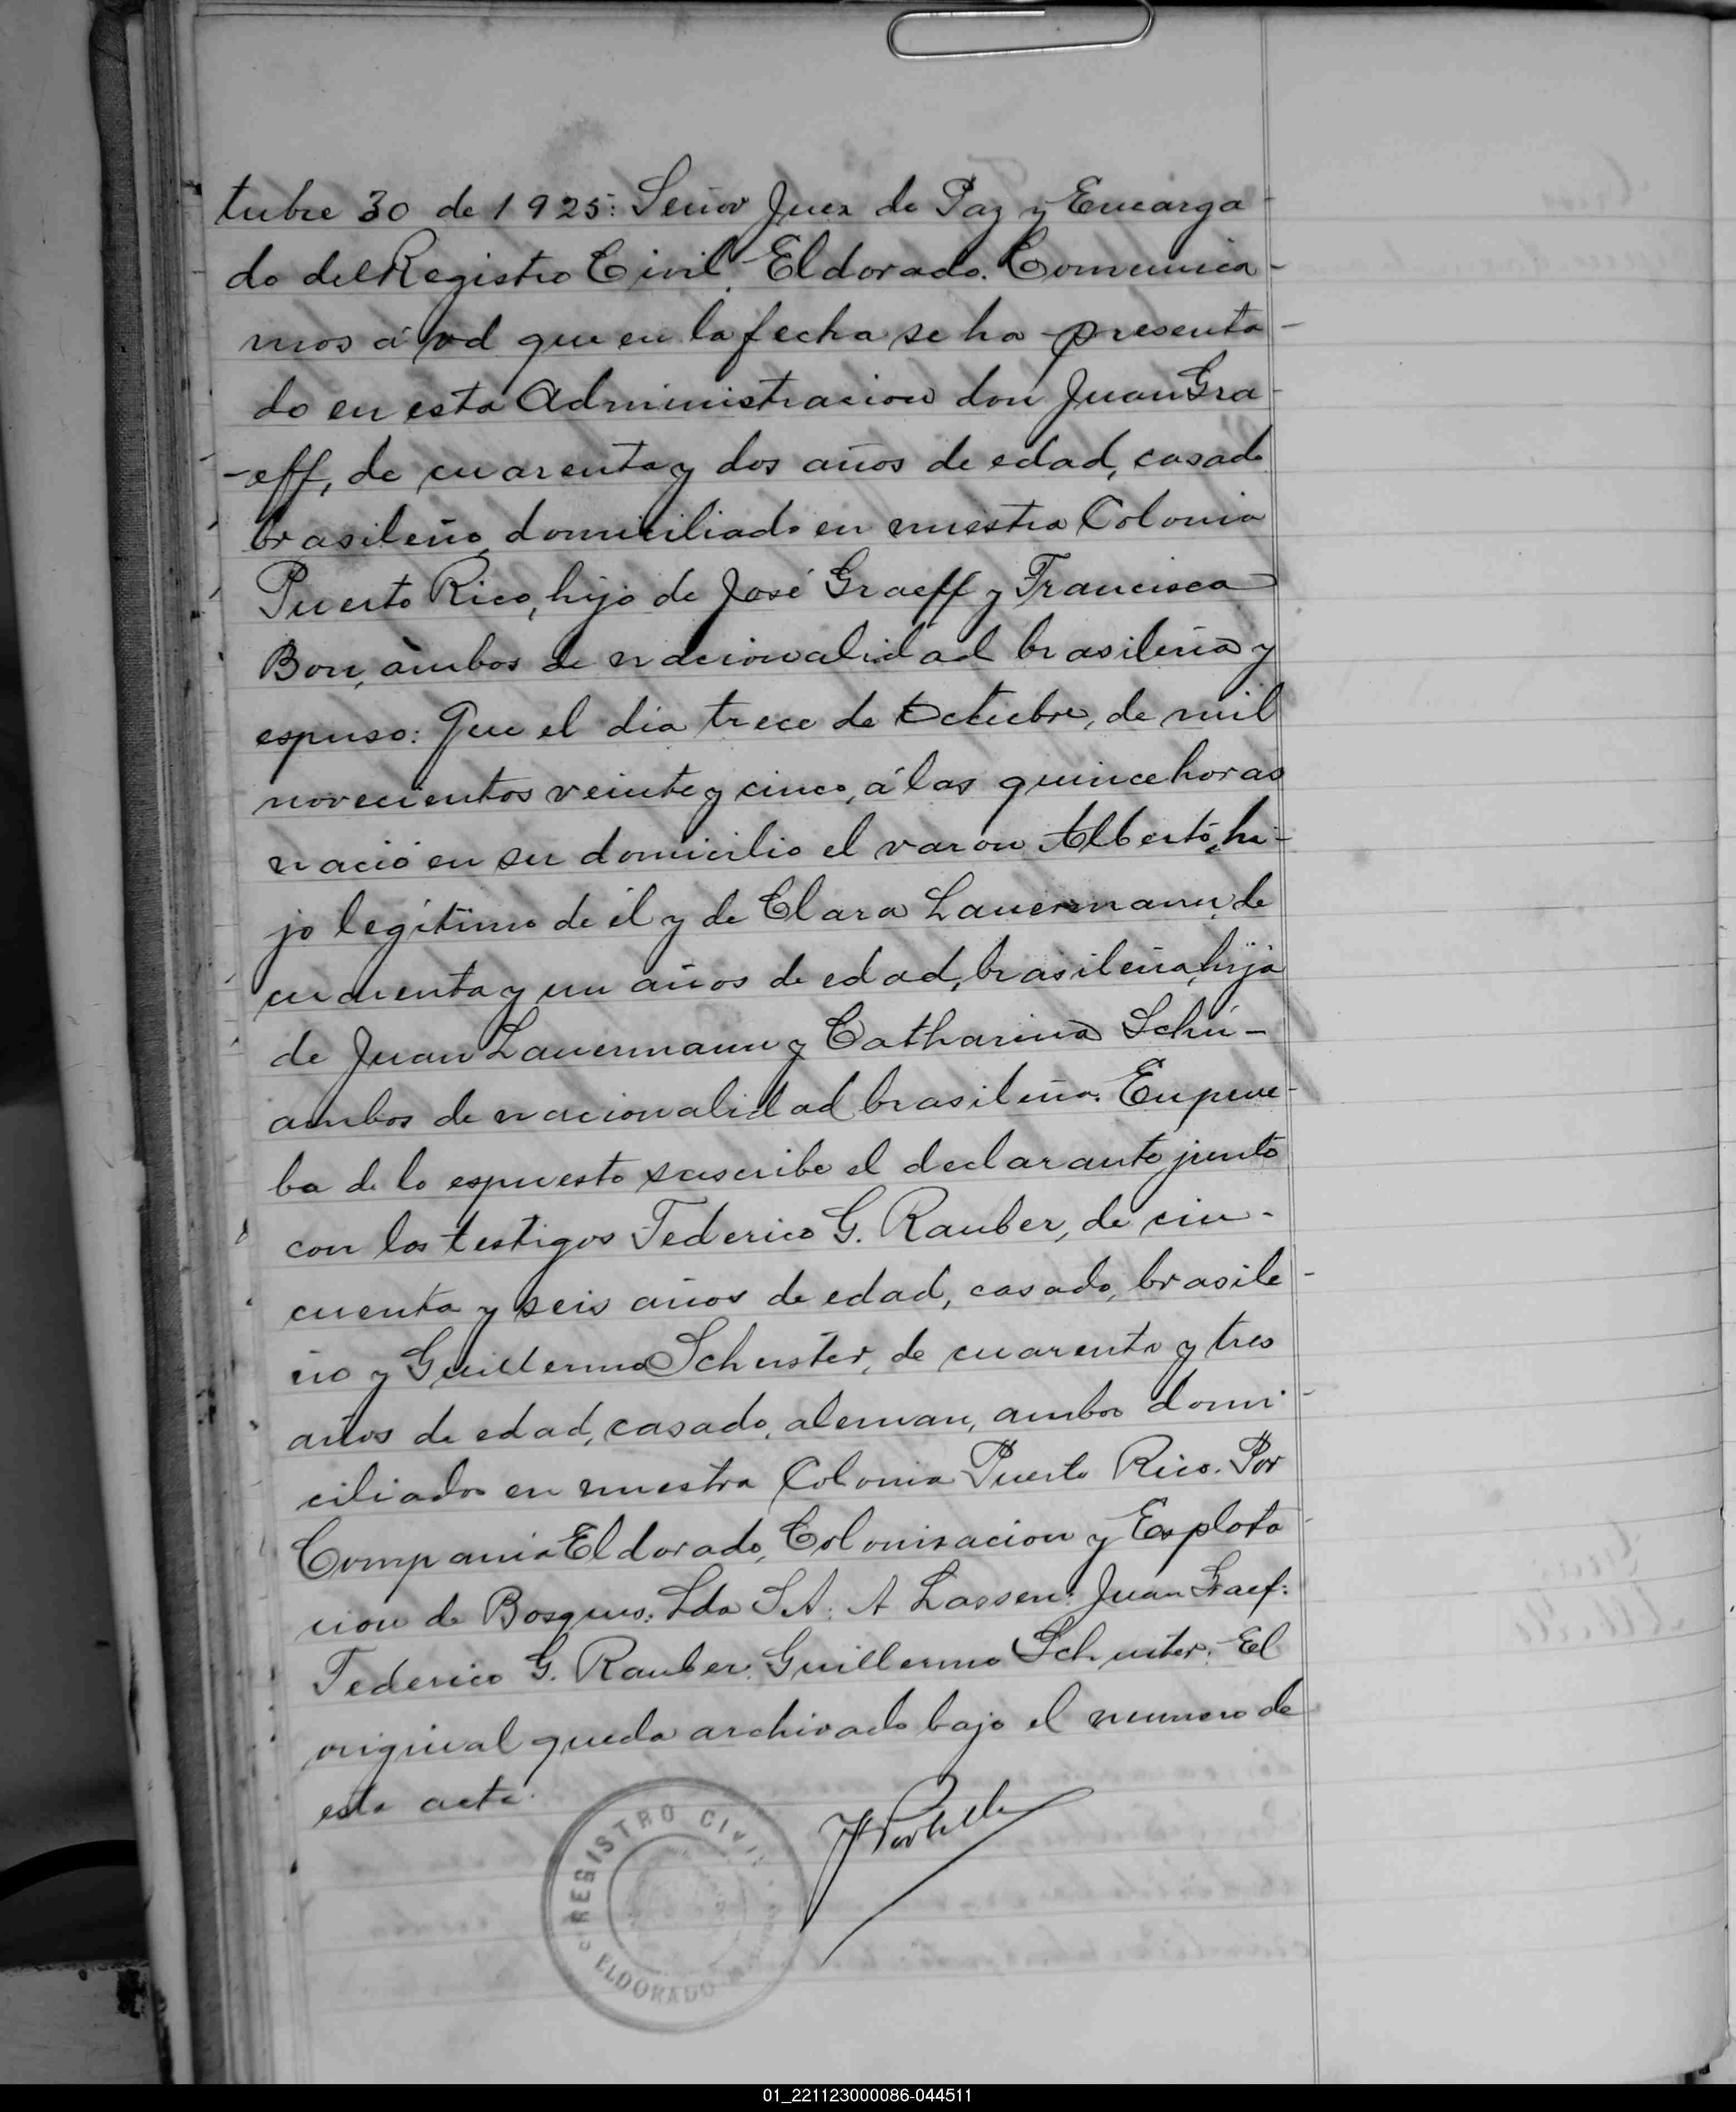 tubre 30 de 1925: Señor Juez de Paz y Encarga-
do del Registro Civil. Eldorado. Comunica-
mos á vd que en la fecha se ha presenta-
do en esta Administracion don Juan Gra-
-eff, de cuarenta y dos años de edad, casado
brasileño, domiciliado en nuestra Colonia
Puerto Rico, hijo de José Graeff y Francisca
Bon, ambos de nacionalidad brasileña y
espuso: Que el dia trece de Octubre, de mil
novecientos veinte y cinco, á las quince horas
nació en su domicilio el varon Alberto, hi-
jo legítimo de él y de Clara Lauermann, de
cuarenta y un años de edad, brasileña, hija
de Juan Lauermann y Catharina Schú-
ambos de nacionalidad brasileña. En prue-
ba de lo espuesto suscribe el declarante junto
con los testigos Federico G. Rauber, de cin-
cuenta y seis años de edad, casado, brasile-
ño y Guillermo Schuster, de cuarenta y tres
años de edad, casado, aleman, ambos domi-
ciliados en nuestra Colonia Puerto Rico. Por
Compania Eldorado, Colonisacion y Esplota-
cion de Bosques. Lda S.A. A Lassen: Juan Graef:
Federico G. Rauber. Guillermo Schuster. El
original queda archivado bajo el numero de
esta acta.
REGISTRO CIVIL
ELDORADO
01_221123000086-044511